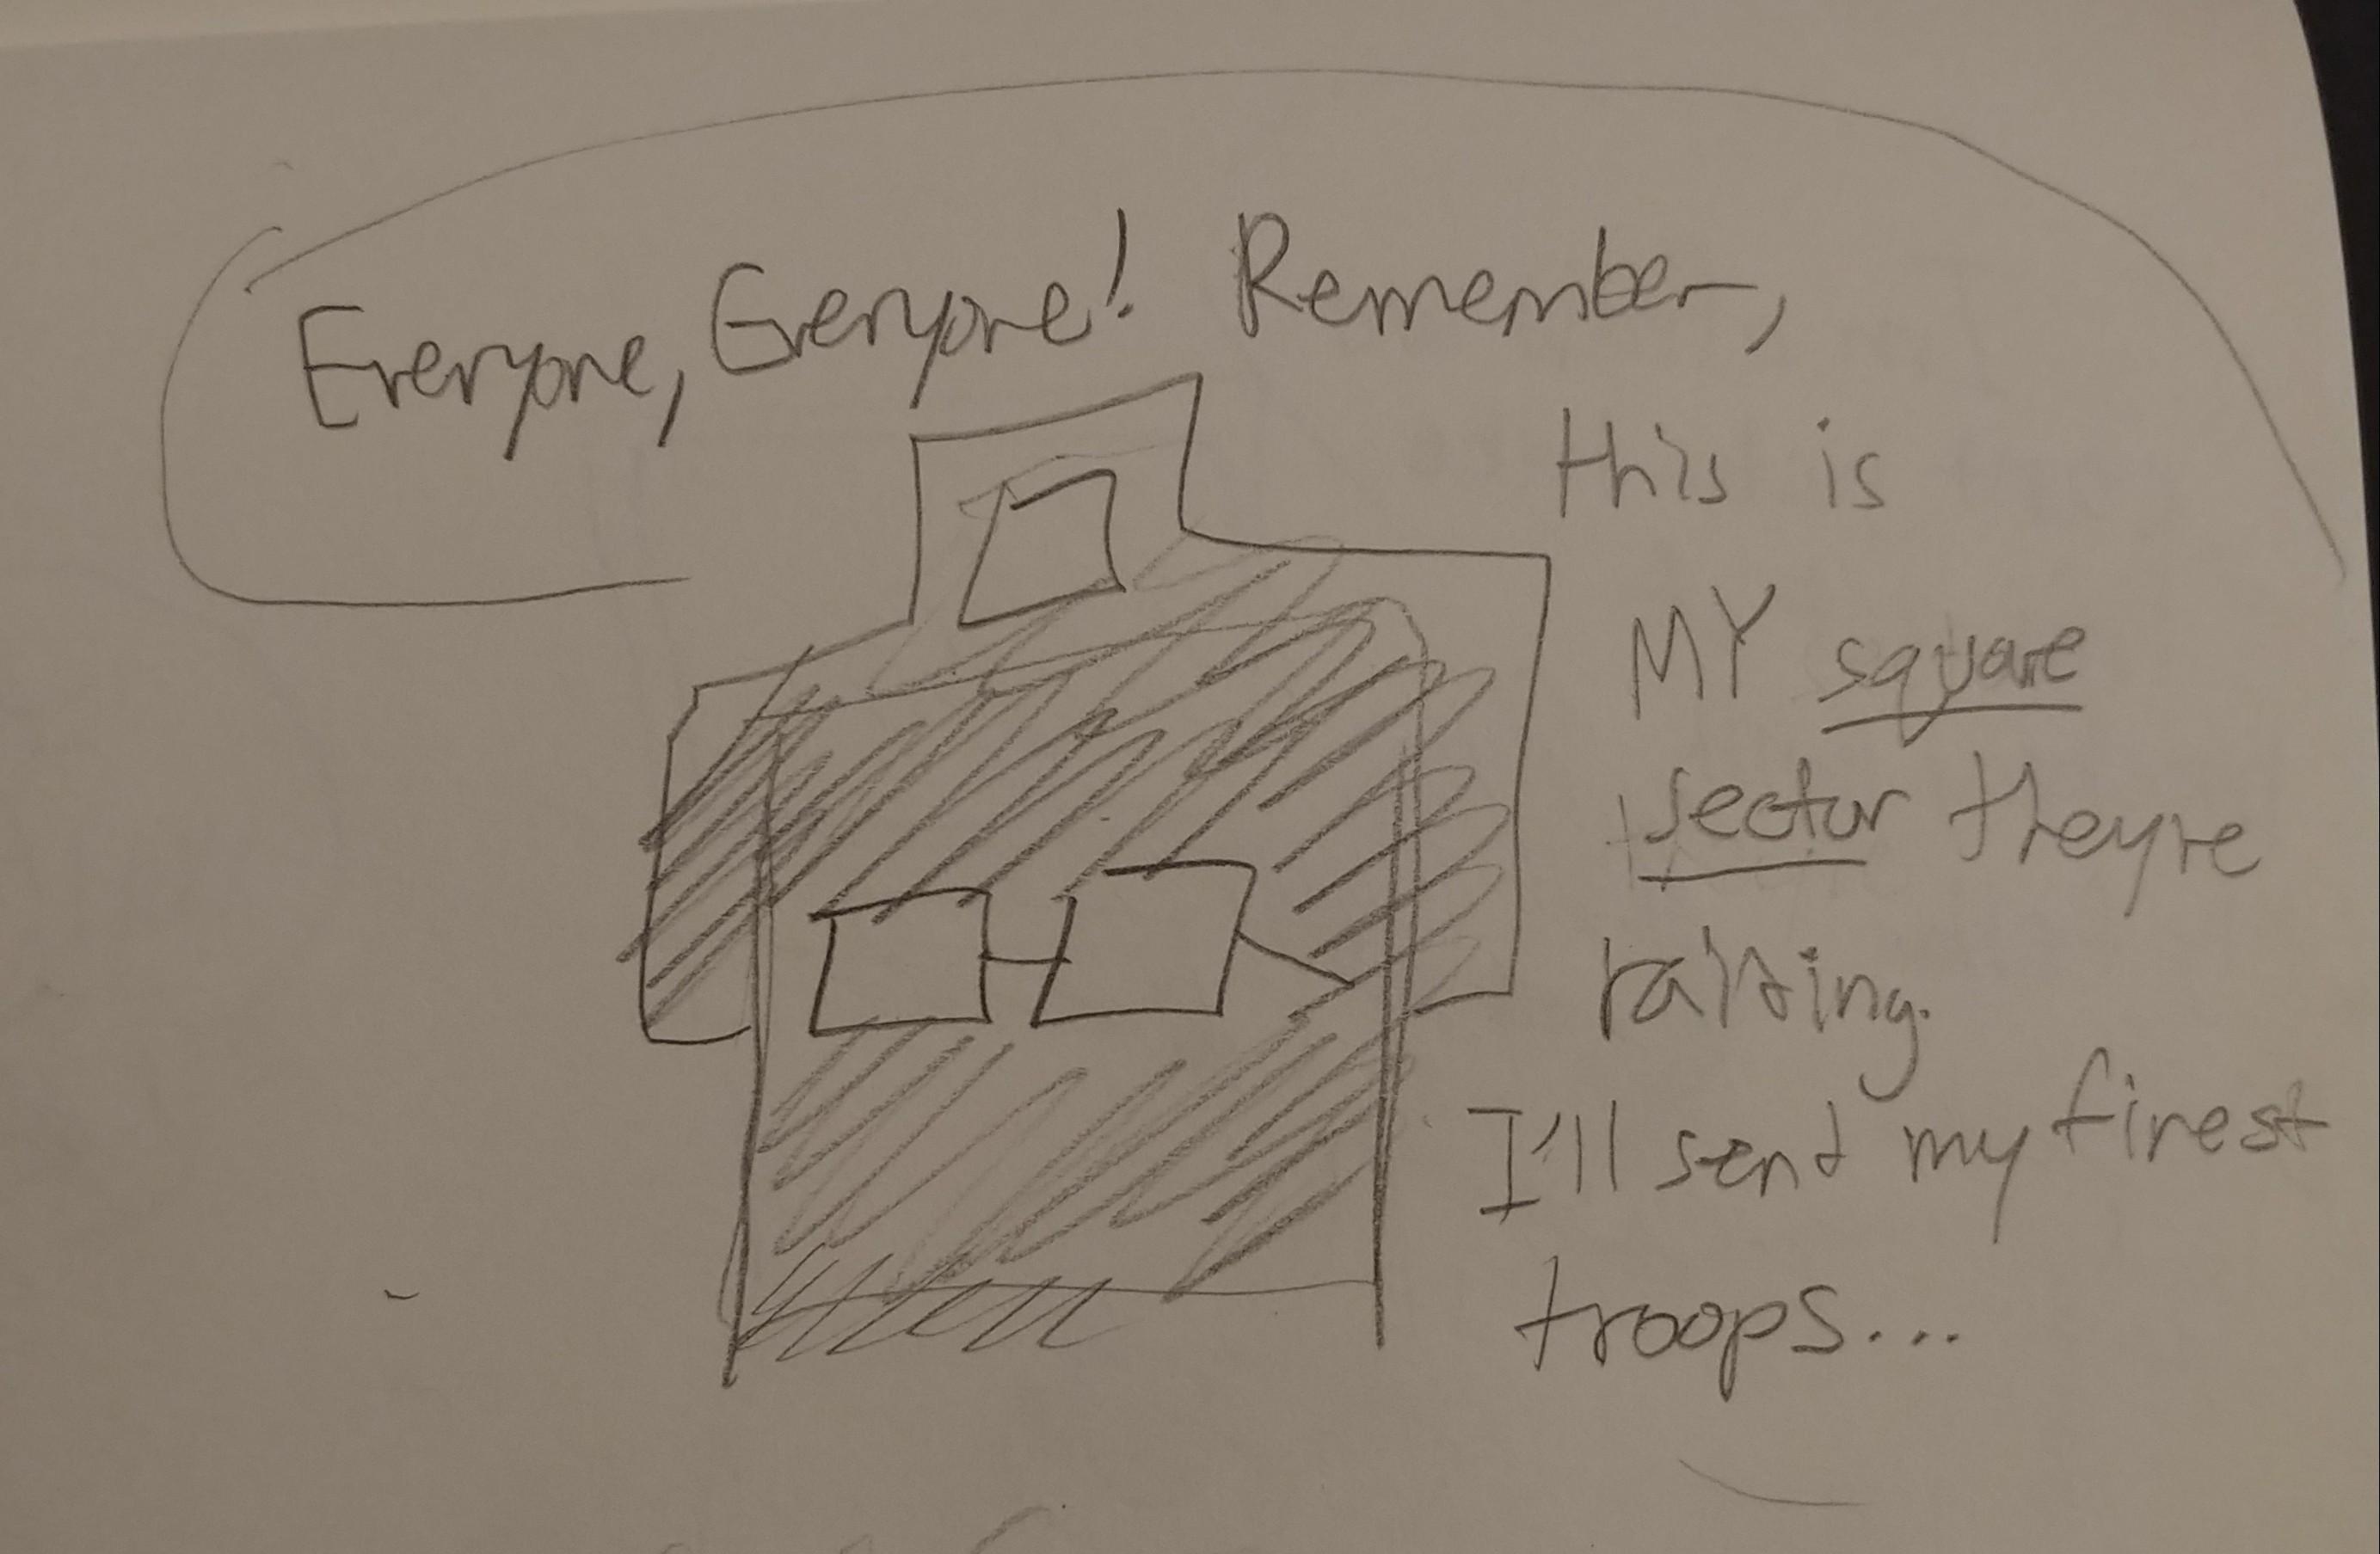 Everyone, Everyone! Remember,
this is
MY square
sector theyre
raiding.
I'll send my finest
troops...